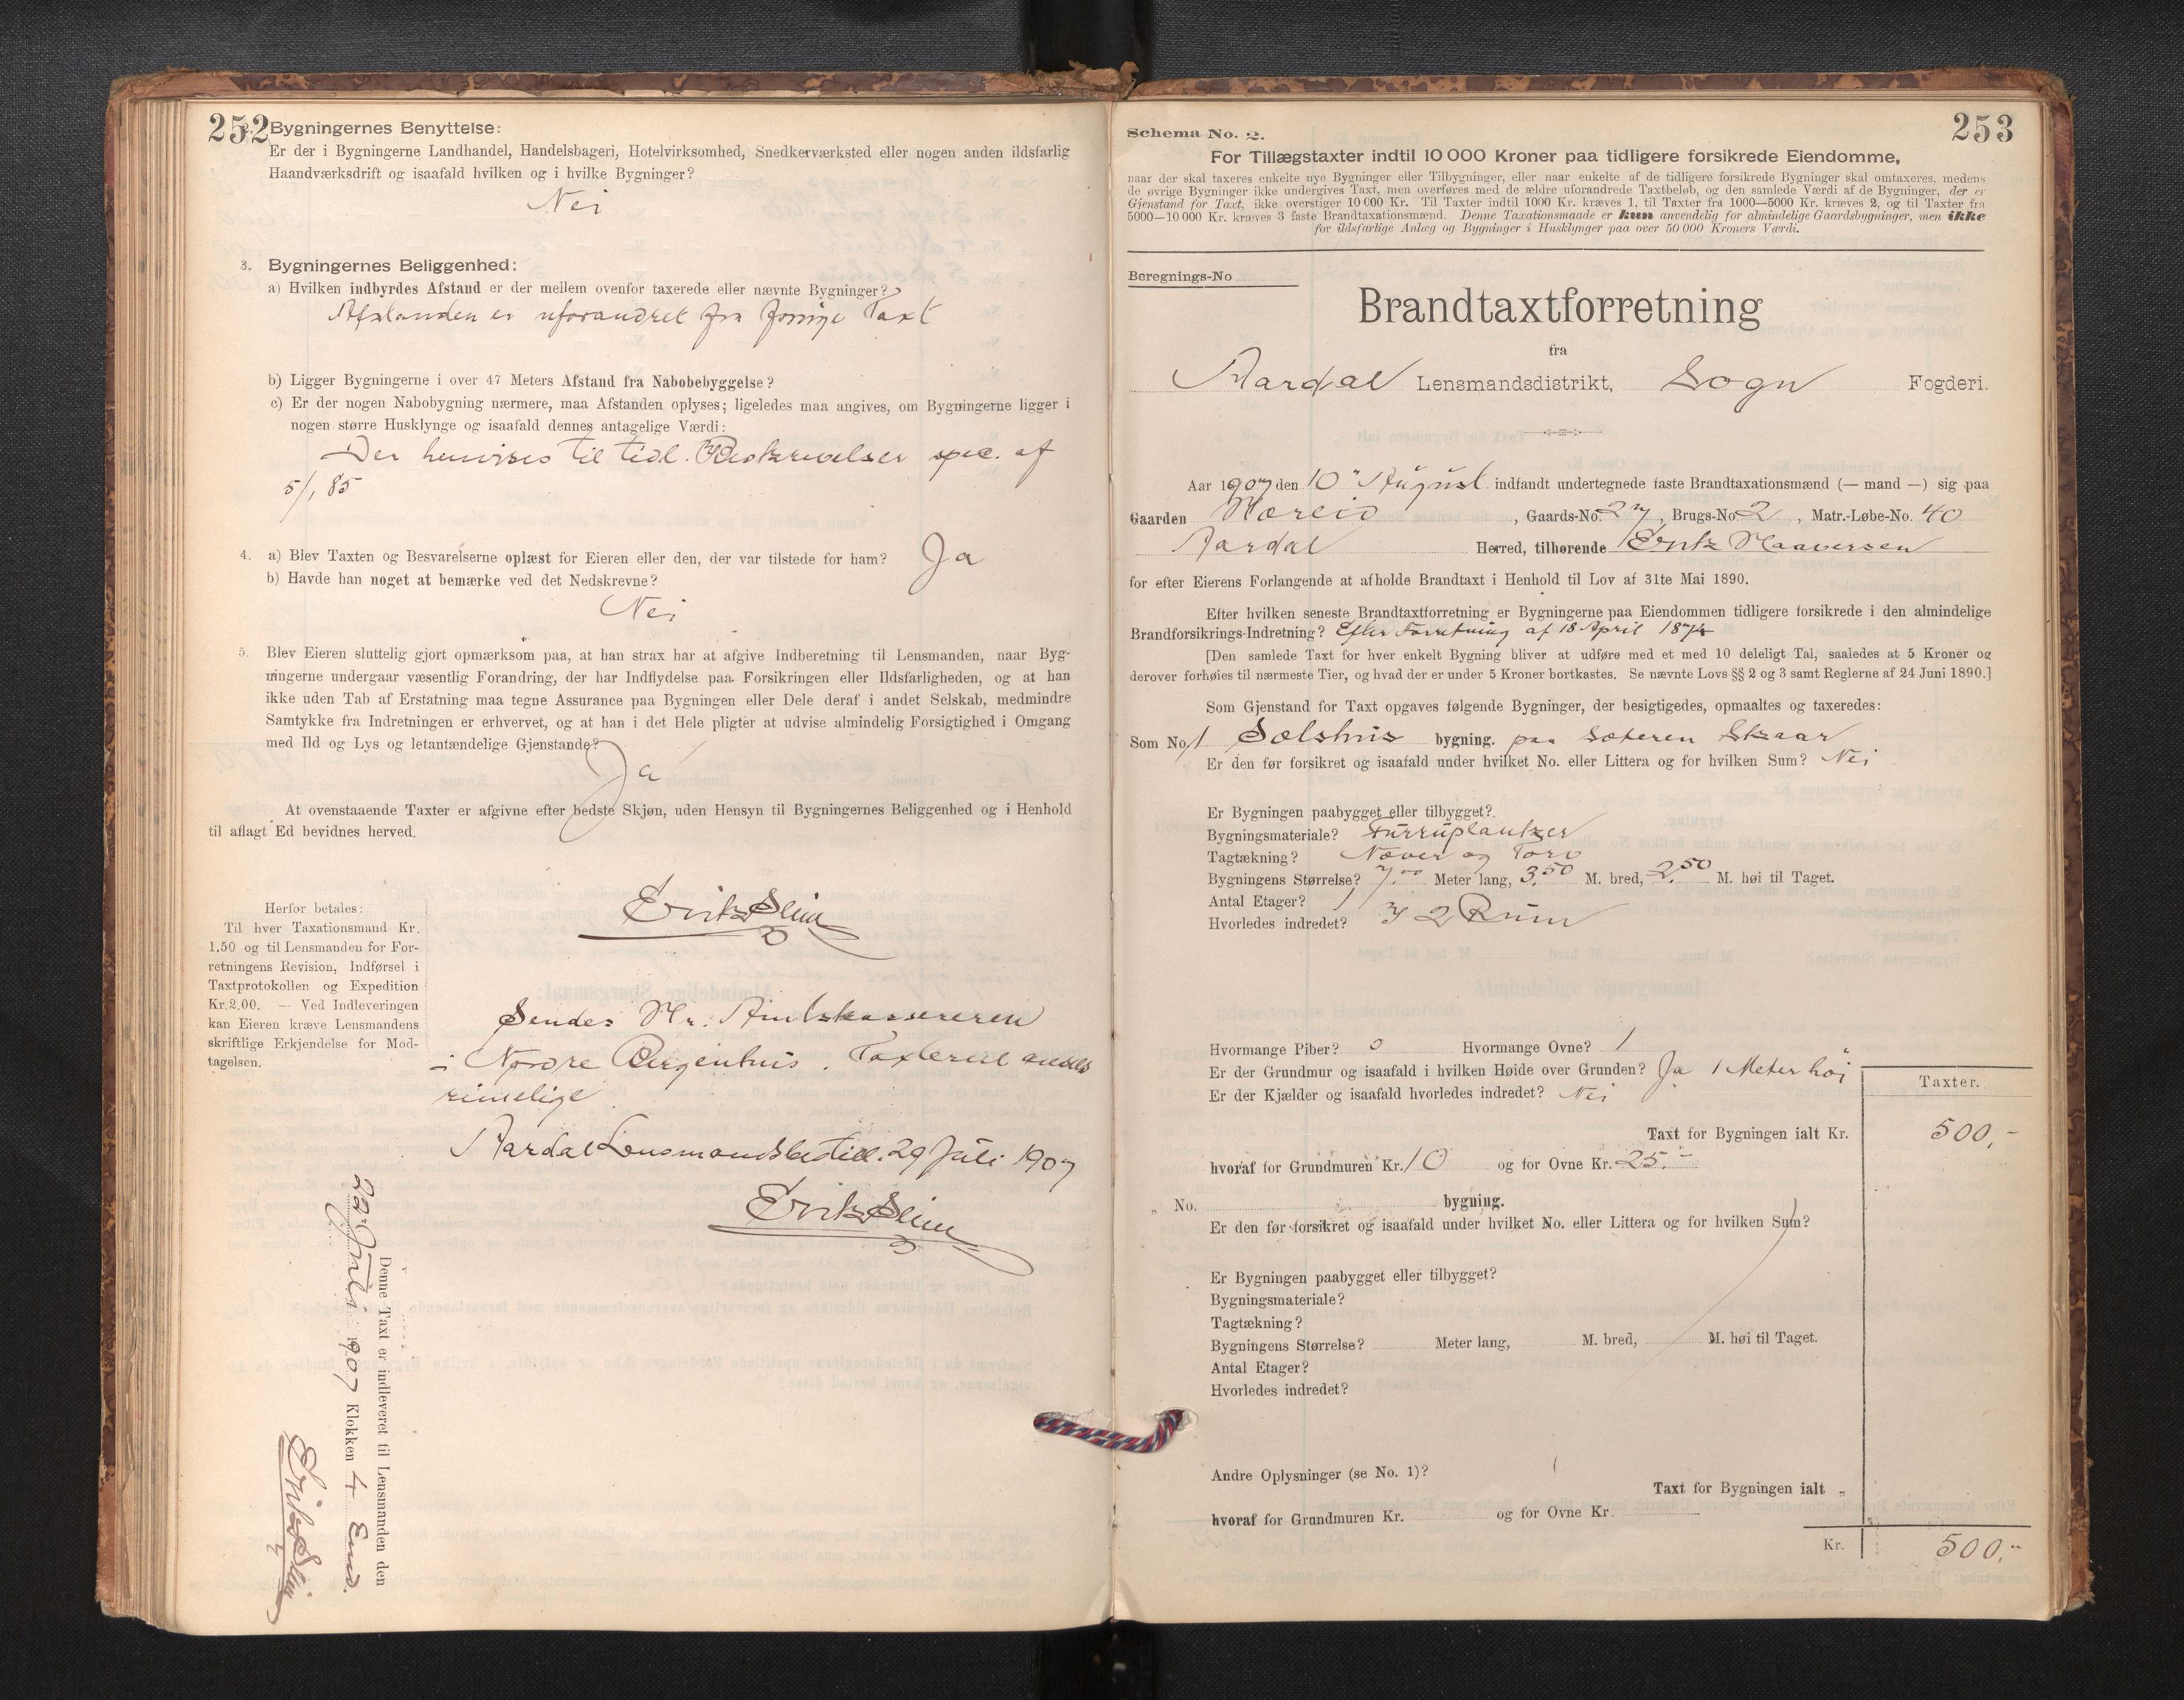 252
Bygningernes Benyttelse:
Er der i Bygningerne Landhandel, Handelsbageri, Hotelvirksomhed, Snedkerværksted eller nogen anden ildsfarlig
Haandværksdrift og isaafald hvilken og i hvilke Bygninger?
Nei
3. Bygningernes Beliggenhed:
a) Hvilken indbyrdes Afstand er der mellem ovenfor taxerede eller nævnte Bygninger?
Afstanden er uforandret fra forrige Taxt
b) Ligger Bygningerne i over 47 Meters Afstand fra Nabobebyggelse?
c) Er der nogen Nabobygning nærmere, maa Afstanden oplyses; ligeledes maa angives, om Bygningerne ligger i
nogen større Husklynge og isaafald dennes antagelige Værdi:
Der henvises til tidl. Beskrivelser spec. af
5/1 85
4. a) Blev Taxten og Besvarelserne oplæst for Eieren eller den, der var tilstede for ham? Ja
b) Havde han noget at bemærke ved det Nedskrevne?
Nei
5. Blev Eieren sluttelig gjort opmærksom paa, at han strax har at afgive Indberetning til Lensmanden, naar Byg-
ningerne undergaar væsentlig Forandring, der har Indflydelse paa Forsikringen eller Ildsfarligheden, og at han
ikke uden Tab af Erstatning maa tegne Assurance paa Bygningen eller Dele deraf i andet Selskab, medmindre
Samtykke fra Indretningen er erhvervet, og at han i det Hele pligter at udvise almindelig Forsigtighed i Omgang
med Ild og Lys og letantændelige Gjenstande?
Ja
At ovenstaaende Taxter er afgivne efter bedste Skjøn, uden Hensyn til Bygningernes Beliggenhed og i Henhold
til aflagt Ed bevidnes herved.
Erik Slim
Herfor betales:
Til hver Taxationsmand Kr.
1.50 og til Lensmanden for For-
retningens Revision, Indførsel i
Taxtprotokollen og Expedition
Kr. 2.00. — Ved Indleveringen
kan Eieren kræve Lensmandens
skriftlige Erkjendelse for Mod-
tagelsen.
Sendes Hr. Amtskassereren
i Nordre Bergenhus. Taxterne ansees
rimelige
Aardal Lensmandsbestill. 29 Juli 1907
Erik Slim
Denne Taxt er indleveret til Lensmanden den
29 Juli 1907 Klokken 4 Emd.
Erik Slim
253
Schema No. 2.
For Tillægstaxter indtil 10 000 Kroner paa tidligere forsikrede Eiendomme,
naar der skal taxeres enkelte nye Bygninger eller Tilbygninger, eller naar enkelte af de tidligere forsikrede Bygninger skal omtaxeres, medens
de øvrige Bygninger ikke undergives Taxt, men overføres med de ældre uforandrede Taxtbeløb, og den samlede Værdi af de Bygninger, der er
Gjenstand for Taxt, ikke overstiger 10 000 Kr. Til Taxter indtil 1000 Kr. kræves 1, til Taxter fra 1000—5000 Kr. kræves 2, og til Taxter fra
5000—10 000 Kr. kræves 3 faste Brandtaxationsmænd. Denne Taxationsmaade er kun anvendelig for almindelige Gaardsbygninger, men ikke
for ildsfarlige Anlæg og Bygninger i Husklynger paa over 50 000 Kroners Værdi.
Beregnings-No
Brandtaxtforretning
fra
Aardal Lensmandsdistrikt, Sogn Fogderi.
Aar 1907 den 10" August indfandt undertegnede faste Brandtaxationsmænd (— mand —) sig paa
Gaarden Hæreid, Gaards-No. 27, Brugs-No. 2, Matr.-Løbe-No. 40
Aardal Herred, tilhørende Erik Haaversen
for efter Eierens Forlangende at afholde Brandtaxt i Henhold til Lov af 31te Mai 1890.
Efter hvilken seneste Brandtaxtforretning er Bygningerne paa Eiendommen tidligere forsikrede i den almindelige
Brandforsikrings-Indretning? Efter Forretning af 18 April 1874
[Den samlede Taxt for hver enkelt Bygning bliver at udføre med et med 10 deleligt Tal, saaledes at 5 Kroner og
derover forhøies til nærmeste Tier, og hvad der er under 5 Kroner bortkastes. Se nævnte Lovs §§ 2 og 3 samt Reglerne af 24 Juni 1890.]
Som Gjenstand for Taxt opgaves følgende Bygninger, der besigtigedes, opmaaltes og taxeredes:
Som No. 1 Sælshus bygning. paa Sæteren Skaar
Er den før forsikret og isaafald under hvilket No. eller Littera og for hvilken Sum? Nei
Er Bygningen paabygget eller tilbygget?
Bygningsmateriale? Furruplanker
Tagtækning? Næver og Torv
Bygningens Størrelse? 7.00 Meter lang, 3.50 M. bred, 2.50 M. høi til Taget.
Antal Etager? 1
Hvorledes indredet? Til 2 Rum
Hvormange Piber? 0 Hvormange Ovne? 1
Er der Grundmur og isaafald i hvilken Høide over Grunden? Ja 1 Meter høi
Er der Kjælder og isaafald hvorledes indredet? Nei
Taxter.
Taxt for Bygningen ialt Kr. 500,-
hvoraf for Grundmuren Kr. 10 og for Ovne Kr. 25.-
„ No. bygning.
Er den før forsikret og isaafald under hvilket No. eller Littera og for hvilken Sum?
Er Bygningen paabygget eller tilbygget?
Bygningsmateriale?
Tagtækning?
Bygningens Størrelse? Meter lang, M. bred, M. høi til Taget.
Antal Etager?
Hvorledes indredet?
Andre Oplysninger (se No. 1)?
Taxt for Bygningen ialt „
hvoraf for Grundmuren Kr. og for Ovne Kr.
Kr. 500,-